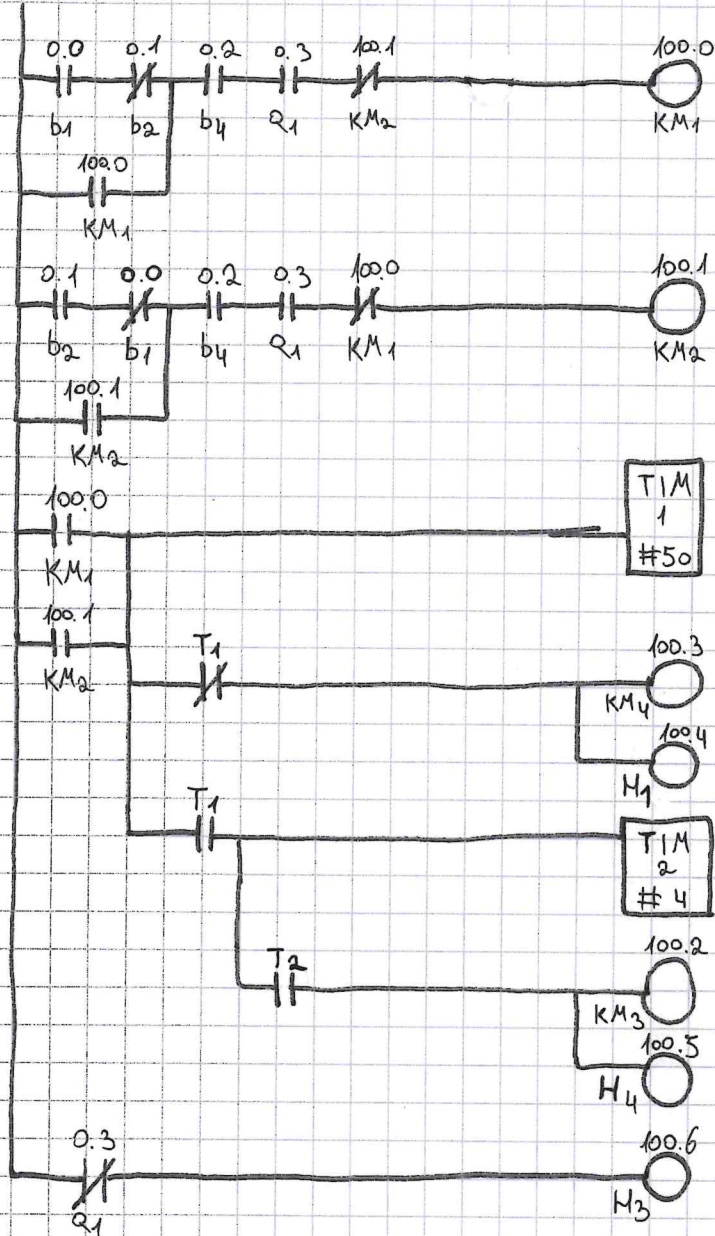 0.0 0.1 0.2 0.3 100.1 100.0
b1 b2 b4 Q1 KM2 KM1
100.0
KM1
0.1 0.0 0.2 0.3 100.0 100.1
b2 b1 b4 Q1 KM1 KM2
100.1
KM2
100.0
KM1
TIM
1
#50
100.1
KM2
T1
100.3
KM4
100.4
H1
T1
TIM
2
# 4
T2
100.2
KM3
100.5
H4
0.3
Q1
100.6
H3